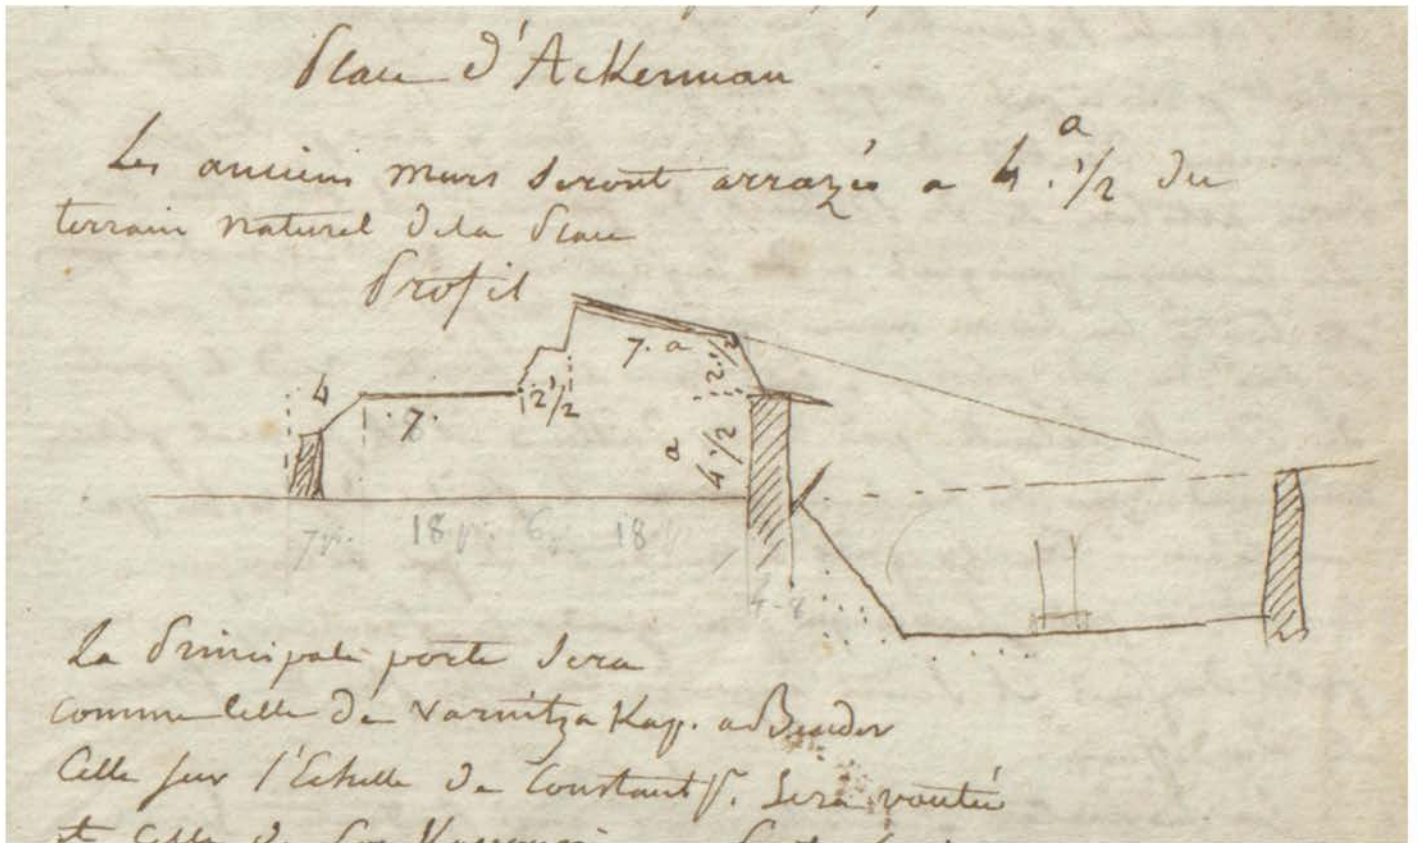 Place d'Ackerman
Les anciens murs seront arrazés a 4.a 1/2 du
terrain naturel de la Place
Profil
7. a
2.1/2
4
7.
2 1/2
a
4 1/2
7 p.
18 p.
6 p.
18 p
La Principale porte sera
comme celle de Varnitza Kap. a Bender
Celle sur l'Echelle de Constantp. sera voutée
et Celle de